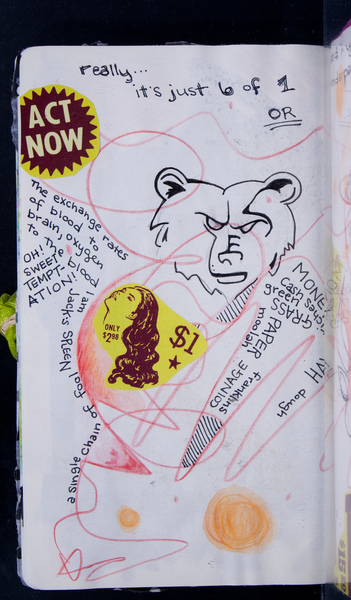 really...
it's just 6 of 1
OR
ACT
NOW
The exchange rates
of blood to
brain, oxygen
to the blood
OH!
SWEET
TEMPT-
ATION!
I am
Jack's SPLEEN
a single chain of fool
ONLY
$2.98
$1
MONEY
cash
green
GRASS
PAPER
moolah
COINAGE
franklins
dough